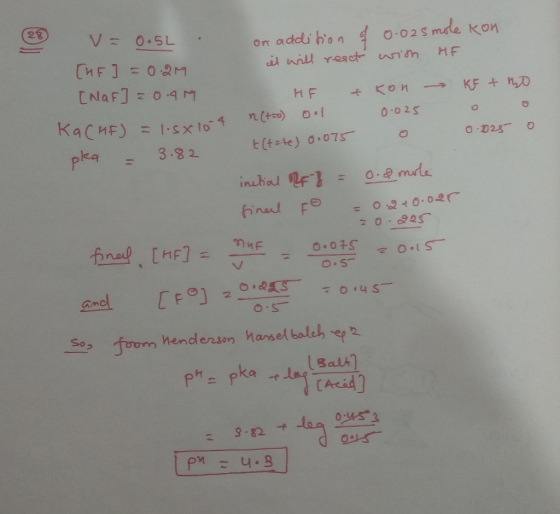 28
V = 0.5L
[HF] = 0.2M
[NaF] = 0.4M
Ka(HF) = 1.5×10⁻⁴
pka = 3.82
on addition of 0.025 mole KOH
it will react with HF
HF + KOH → KF + H₂O
n(t=0) 0.1 0.025 0 0
t(t=te) 0.075 0 0.025 0
initial [F⁻] = 0.2 mole
final F⊖ = 0.2+0.025
= 0.225
final [HF] = nHF/V = 0.075/0.5 = 0.15
and [F⊖] = 0.225/0.5 = 0.45
So, from Henderson Hasselbalch eqn
pH = pka + log [Salt]/[Acid]
= 3.82 + log 0.45 3/0.15
pH = 4.3